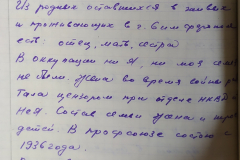 Из родных оставшихся в живых
и проживающих в г. Симферополе
есть: отец, мать, сестра
В оккупации ни я, ни моя семья
не были. Жена во время войны ра-
тала цензором при отделе НКВД
Состав семьи жена и
детей. В профсоюзе состою с
1936 года.